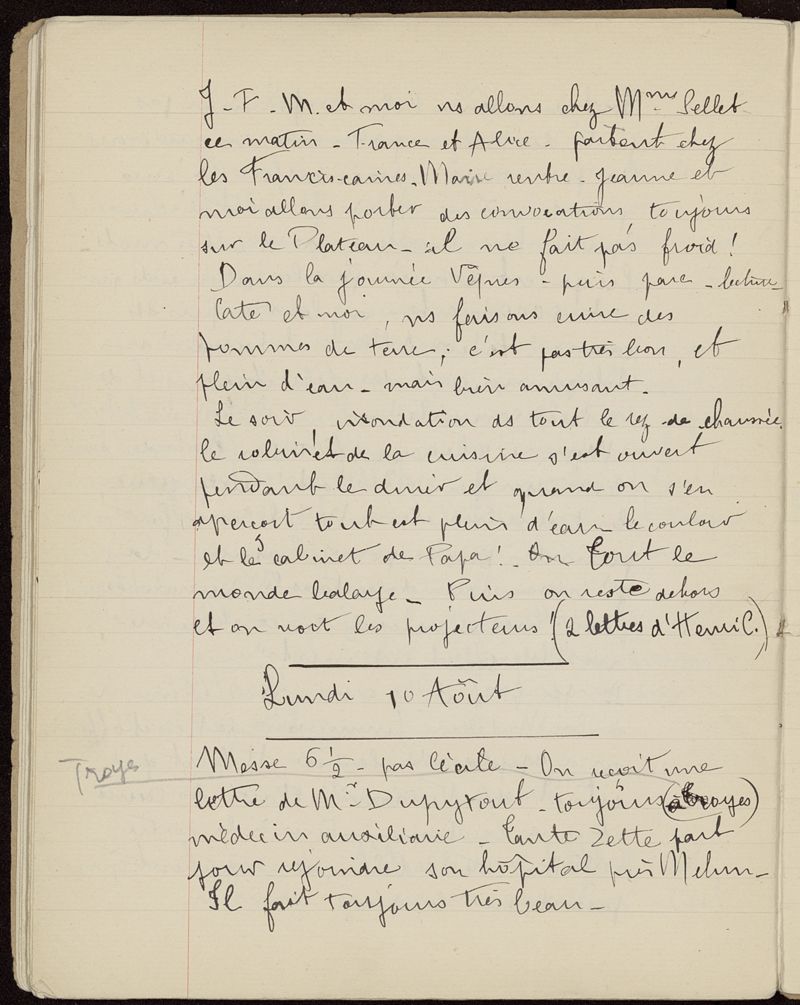 J - F - M. et moi ns allons chez Mme Sellet
ce matin - France et Alice - partent chez
les Franciscaines. Marie rentre - Jeanne et
moi allons porter des convocations, toujours
sur le Plateau - il ne fait pas froid !
Dans la journée Vêpres - puis parc - lecture -
Cate et moi, ns faisons cuire des
pommes de terre, c'est pas très bon, et
plein d'eau - mais bien amusant.
Le soir, inondation ds tout le rez-de-chaussée,
le robinet de la cuisine s'est ouvert
pendant le diner et quand on s'en
aperçoit tout est plein d'eau le couloir
et le cabinet de Papa ! Tout le
monde balaye - Puis on reste dehors
et on voit les projecteurs ! (2 lettres d'Henri C.)
Lundi 10 Août
Troyes
Messe 6 1/2 - pas Cécile - On reçoit une
lettre de Mr Dupytout - toujours (à Troyes)
médecin auxiliaire - Tante Zette part
pour rejoindre son hôpital près Melun -
Il fait toujours très beau -